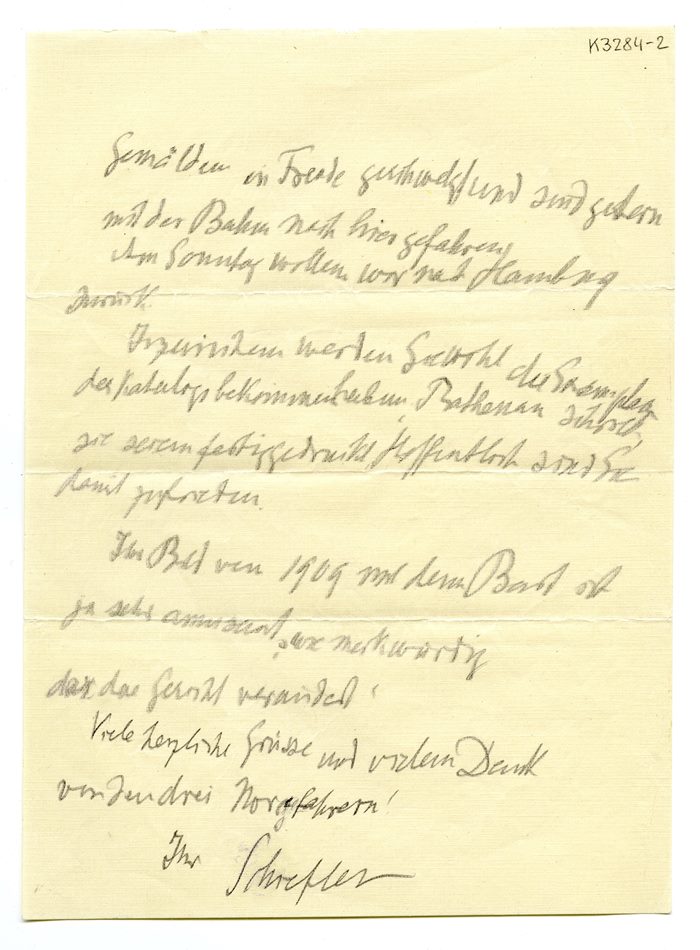 K3284-2
Gemälden in Freude geschwelgt und sind gestern
mit der Bahn nach hier gefahren,
Am Sonntag wollen wir nach Hamburg
zurück.
Inzwischen werden Sie wohl die Exemplare
des Katalogs bekommen haben, Rathenau schrieb,
sie seien fertiggedruckt. Hoffentlich sind Sie
damit zufrieden.
Ihr Bild von 1909 mit dem Bart ist
ja sehr amüsant, wie merkwürdig
das das Gesicht verändert!
Viele herzliche Grüsse und vielen Dank
von den drei Norgefahrern!
Ihr Schiefler